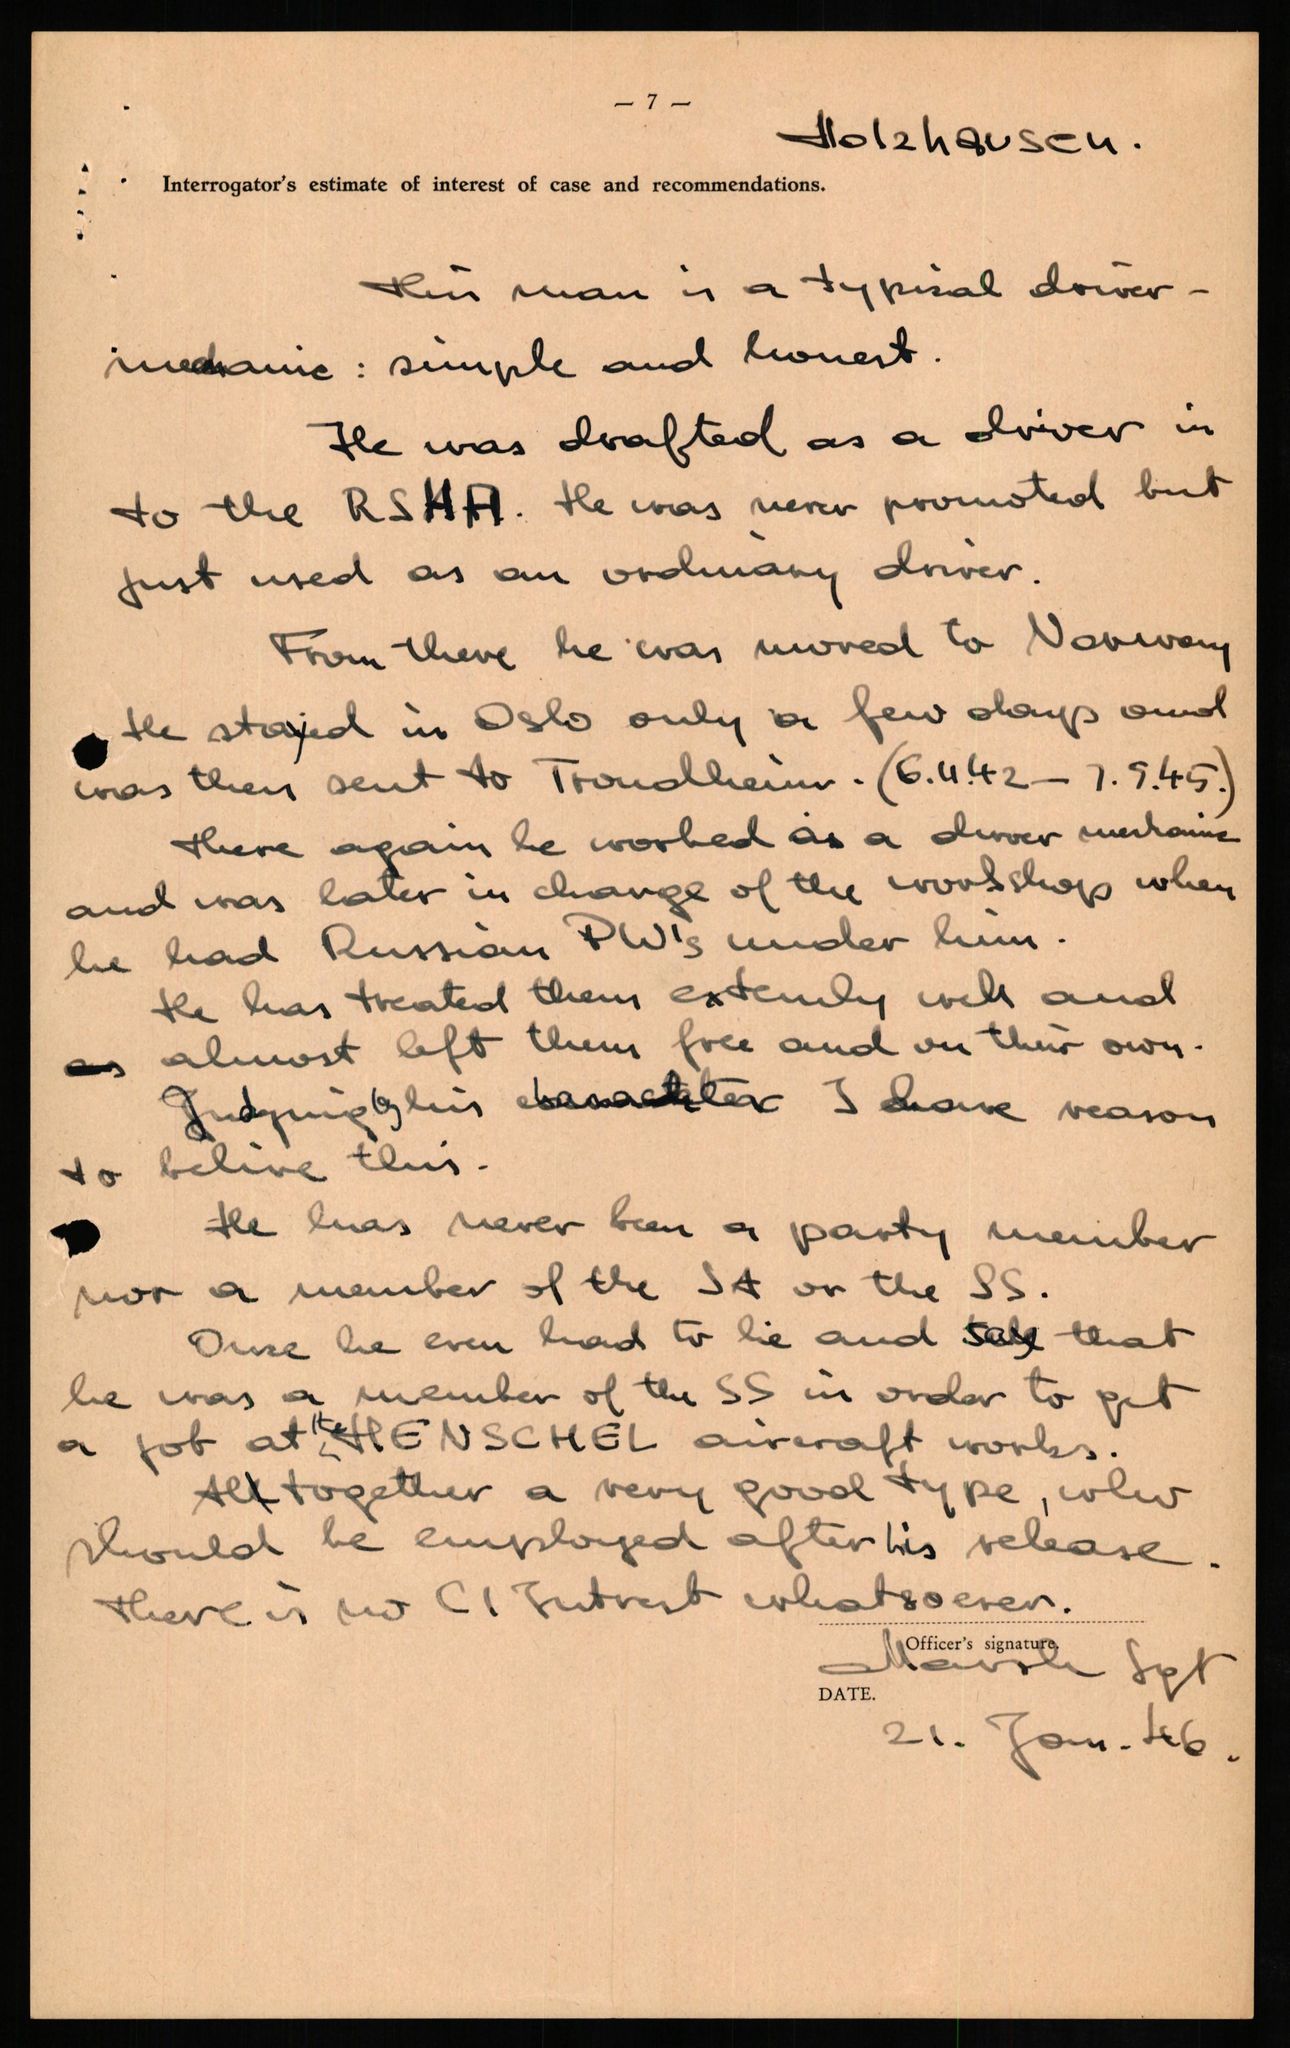 — 7 —
Holzhausen.
Interrogator's estimate of interest of case and recommendations.
This man is a typical driver-
mechanic : simple and honest.
He was drafted as a driver in
to the RSHA. He was never promoted but
just used as an ordinary driver.
From there he was moved to Norway
He stayed in Oslo only a few days and
was then sent to Trondheim. (6.11.42 — 7.5.45.)
There again he worked as a driver mechanic
and was later in charge of the workshop when
he had Russian PW's under him.
He has treated them extemly well and
almost left them free and on their own.
Judging by his character I have reason
to belive this.
He has never been a party member
nor a member of the SA or the SS.
Once he even had to lie and say that
he was a member of the SS in order to get
a job at the HENSCHEL aircraft works.
All together a very good type, who
should be employed after his release.
There is no CI Intrest whatsoever.
Officer's signature.
Marsh Sgt
DATE.
21. Jan. 46.